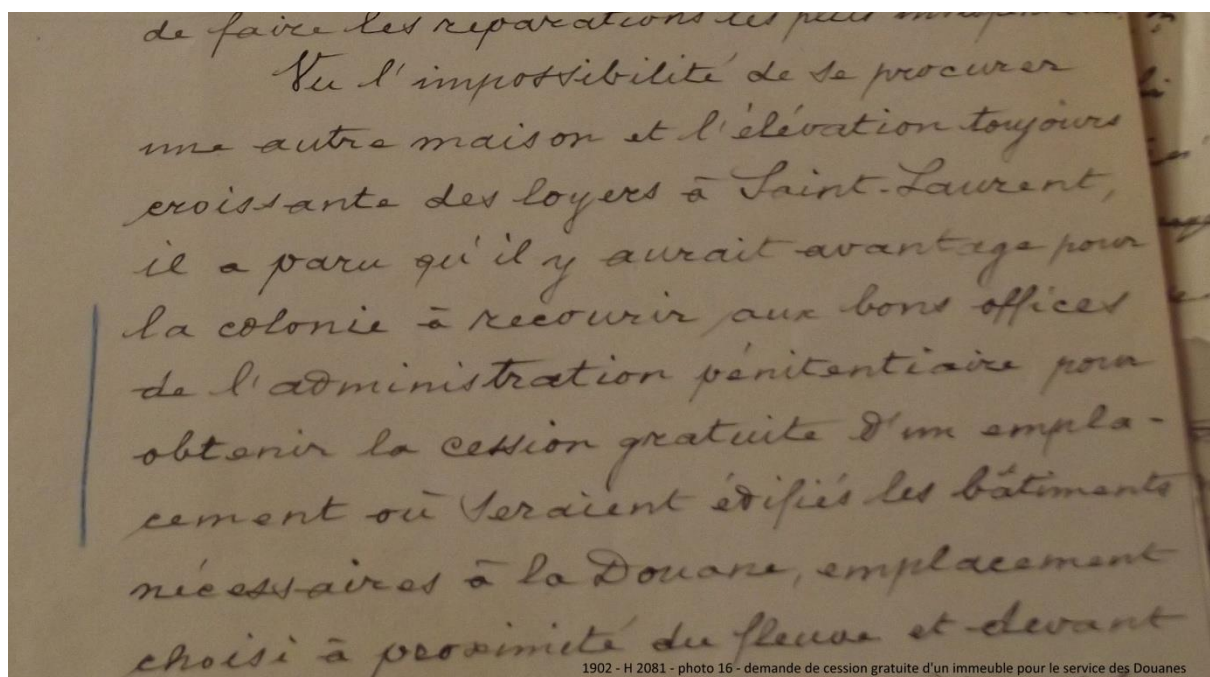 de faire les réparations les plus
Vu l'impossibilité de se procurer
une autre maison et l'élévation toujours
croissante des loyers à Saint-Laurent,
il a paru qu'il y aurait avantage pour
la colonie à recourir aux bons offices
de l'administration pénitentiaire pour
obtenir la cession gratuite d'un empla-
cement où seraient édifiés les bâtiments
nécessaires à la Douane, emplacement
choisi à proximité du fleuve et devant
1902 - H 2081 - photo 16 - demande de cession gratuite d'un immeuble pour le service des Douanes